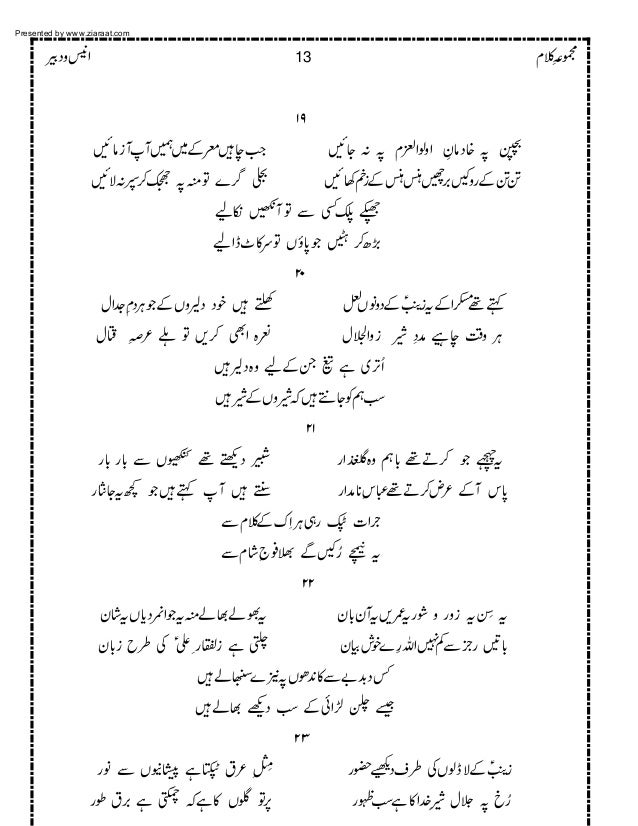 Presented by www.ziaraat.com
مجموعہ کلام 13 انیس و دبیر
۱۹
بچپن پہ خادمانِ اولوالعزم پہ نہ جائیں جب چاہیں معرکے میں ہمیں آپ آزمائیں
تن تن کے روکیں برچھیں ہنس ہنس کے زخم کھائیں بجلی گرے تو منہ پہ جھجک کر سپر نہ لائیں
جھپکے پلک کسی سے تو آنکھیں نکالیے
بڑھ کر ہٹیں جو پاؤں تو سر کاٹ ڈالیے
۲۰
کہتے تھے مسکرا کے یہ زینبؑ کے دونوں لعل کھلتے ہیں خود دلیروں کے جوہر دمِ جدال
ہر وقت چاہیے مددِ شیر زوالجلال نعرہ ابھی کریں تو ہلے عرصہِ قتال
اُتری ہے تیغ جن کے لیے وہ دلیر ہیں
سب ہم کو جانتے ہیں کہ شیروں کے شیر ہیں
۲۱
یہ چہچہے جو کرتے تھے باہم وہ گلغذار شبیر دیکھتے تھے کنکھیوں سے بار بار
پاس آکے عرض کرتے تھے عباس نامدار سنتے ہیں آپ کہتے ہیں جو کچھ یہ جانثار
جرات ٹپک رہی ہر اِک کے کلام سے
یہ نیمچے رُکیں گے بھلا فوجِ شام سے
۲۲
یہ سِن یہ زور و شور یہ عمریں یہ آن بان یہ بھولے بھالے منہ یہ جوانمردیاں یہ شان
باتیں رجز سے کم نہیں اللہ رے خوش بیان چلتی ہے زلفقارِ علیؑ کی طرح زبان
کس دبدبے سے کاندھوں پہ نیزے سنبھالے ہیں
جیسے چلن لڑائی کے سب دیکھے بھالے ہیں
۲۳
زینبؑ کے لاڈلوں کی طرف دیکھیے حضور مِثل عرق ٹپکتا ہے پیشانیوں سے نور
رُخ پہ جلال شیرِ خدا کا ہے سب ظہور پرتو گلوں کا ہے کہ چمکتی ہے برق طور